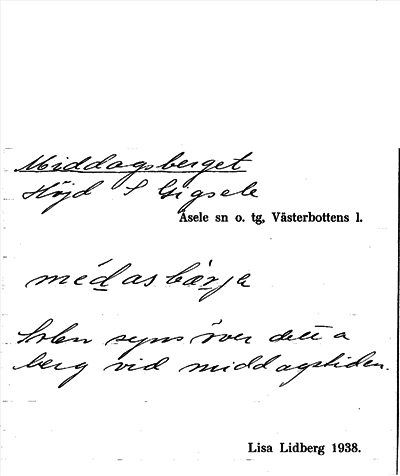 Middagsberget
Höjd S Gigsele
Åsele sn o. tg, Västerbottens l.
médasbärja
Solen syns över detta
berg vid middagstiden.
Lisa Lidberg 1938.